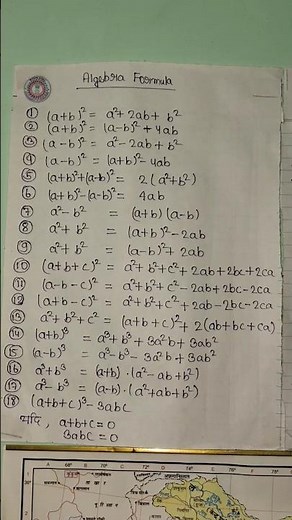 Algebra Formula
① (a+b)² = a²+2ab+b²
② (a+b)² = (a-b)²+4ab
③ (a-b)² = a²-2ab+b²
④ (a-b)² = (a+b)²-4ab
⑤ (a+b)²+(a-b)² = 2(a²+b²)
⑥ (a+b)²-(a-b)² = 4ab
⑦ a²-b² = (a+b)(a-b)
⑧ a²+b² = (a+b)²-2ab
⑨ a²+b² = (a-b)²+2ab
⑩ (a+b+c)² = a²+b²+c²+2ab+2bc+2ca
⑪ (a-b-c)² = a²+b²+c²-2ab+2bc-2ca
⑫ (a+b-c)² = a²+b²+c²+2ab-2bc-2ca
⑬ a²+b²+c² = (a+b+c)²+2(ab+bc+ca)
⑭ (a+b)³ = a³+b³+3a²b+3ab²
⑮ (a-b)³ = a³-b³-3a²b+3ab²
⑯ a³+b³ = (a+b)·(a²-ab+b²)
⑰ a³-b³ = (a-b)·(a²+ab+b²)
⑱ (a+b+c)³-3abc
यदि, a+b+c=0
3abc=0